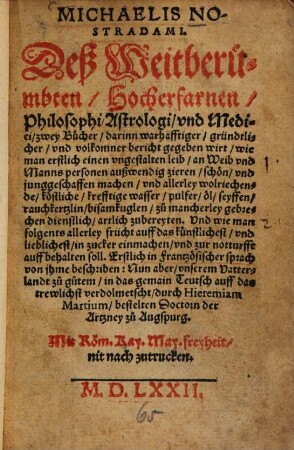 MICHAELIS NO-
STRADAMI.
Deß Weitberü-
mbten / Hocherfarnen /
Philosophi / Astrologi / vnd Medi-
ci / zwey Bücher / darinn warhafftiger / gründtli-
cher / vnd volkomner bericht gegeben wirt / wie
man erstlich einen vngestalten leib / an Weib vnd
Manns personen außwendig zieren / schön / vnd
junggeschaffen machen / vnd allerley wolriechen-
de / köstliche / krefftige wasser / pulfer / öl / seyffen /
rauchkertzlin / bisamkuglen / zu mancherley gebre-
chen dienstlich / artlich zubereyten. Vnd wie man
folgents allerley frücht auff das künstlichest / vnd
lieblichest / in zucker einmachen / vnd zur notturfft
auff behalten soll. Erstlich in Frantzösischer sprach
von jhme beschriben: Nun aber / vnserem Vatter-
landt zů gůtem / in das gemain Teutsch auff das
trewlichst verdolmetscht / durch Hieremiam
Martium / bestelten Doctorn der
Artzney zů Augspurg.
Mit Röm. Kay. May. freyheit /
nit nach zutrucken.
M. D. LXXII.
65